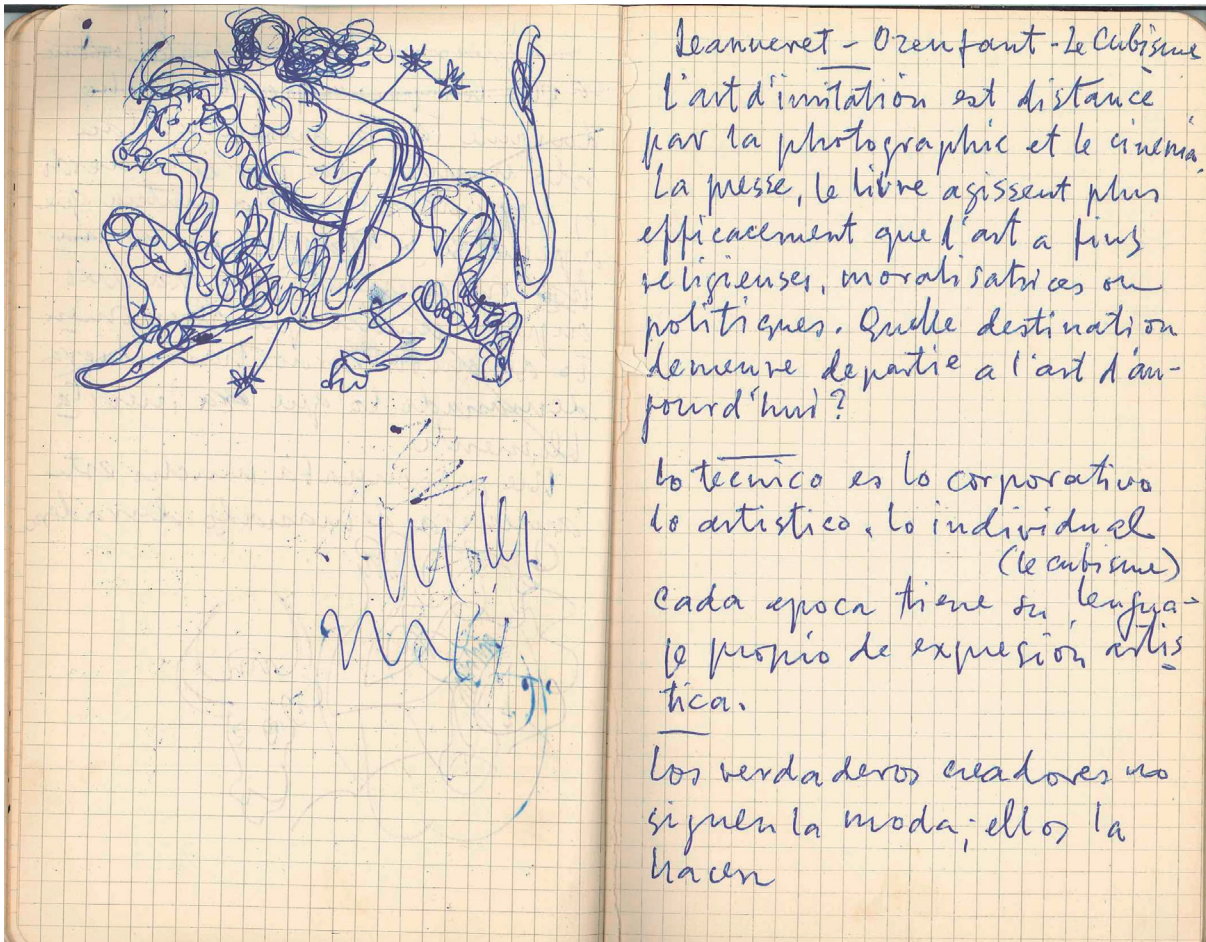 Jeanneret - Ozenfant - Le Cubisme
L'art d'imitation est distancé
par la photographie et le cinema.
La presse, le livre agissent plus
efficacement que l'art a fins
religieuses, moralisatrices ou
politiques. Quelle destination
demeure departie a l'art d'au-
jourd'hui?
Lo tecnico es lo corporativo
lo artistico, lo individual
(le cubisme)
cada epoca tiene su lengua-
je propio de expresión artis
tica.
Los verdaderos creadores no
siguen la moda; ellos la
hacen